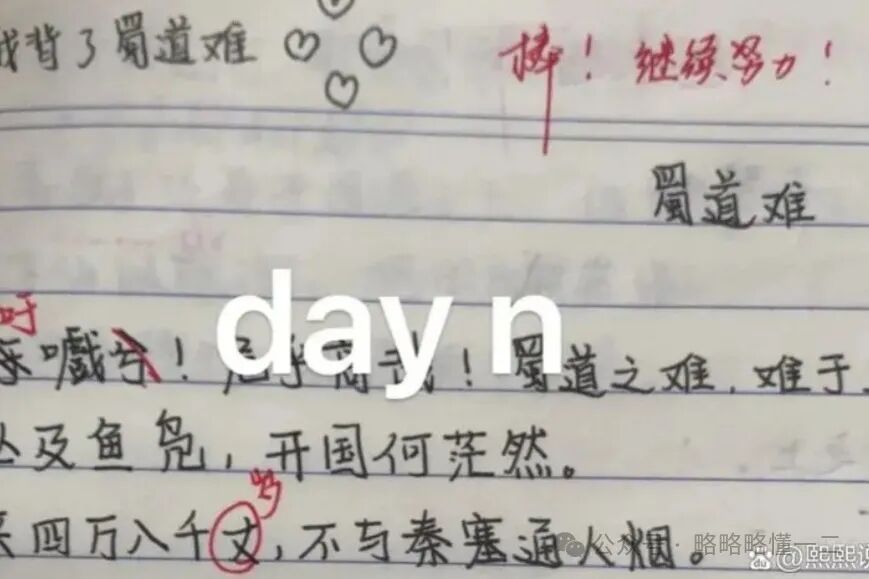 我背了蜀道难
棒！继续努力！
蜀道难
day n
吁
嚱兮！危乎高哉！蜀道之难，难于
丛及鱼凫，开国何茫然。
岁
来四万八千丈，不与秦塞通人烟。
公众号·略略略懂一二
@熙熙说